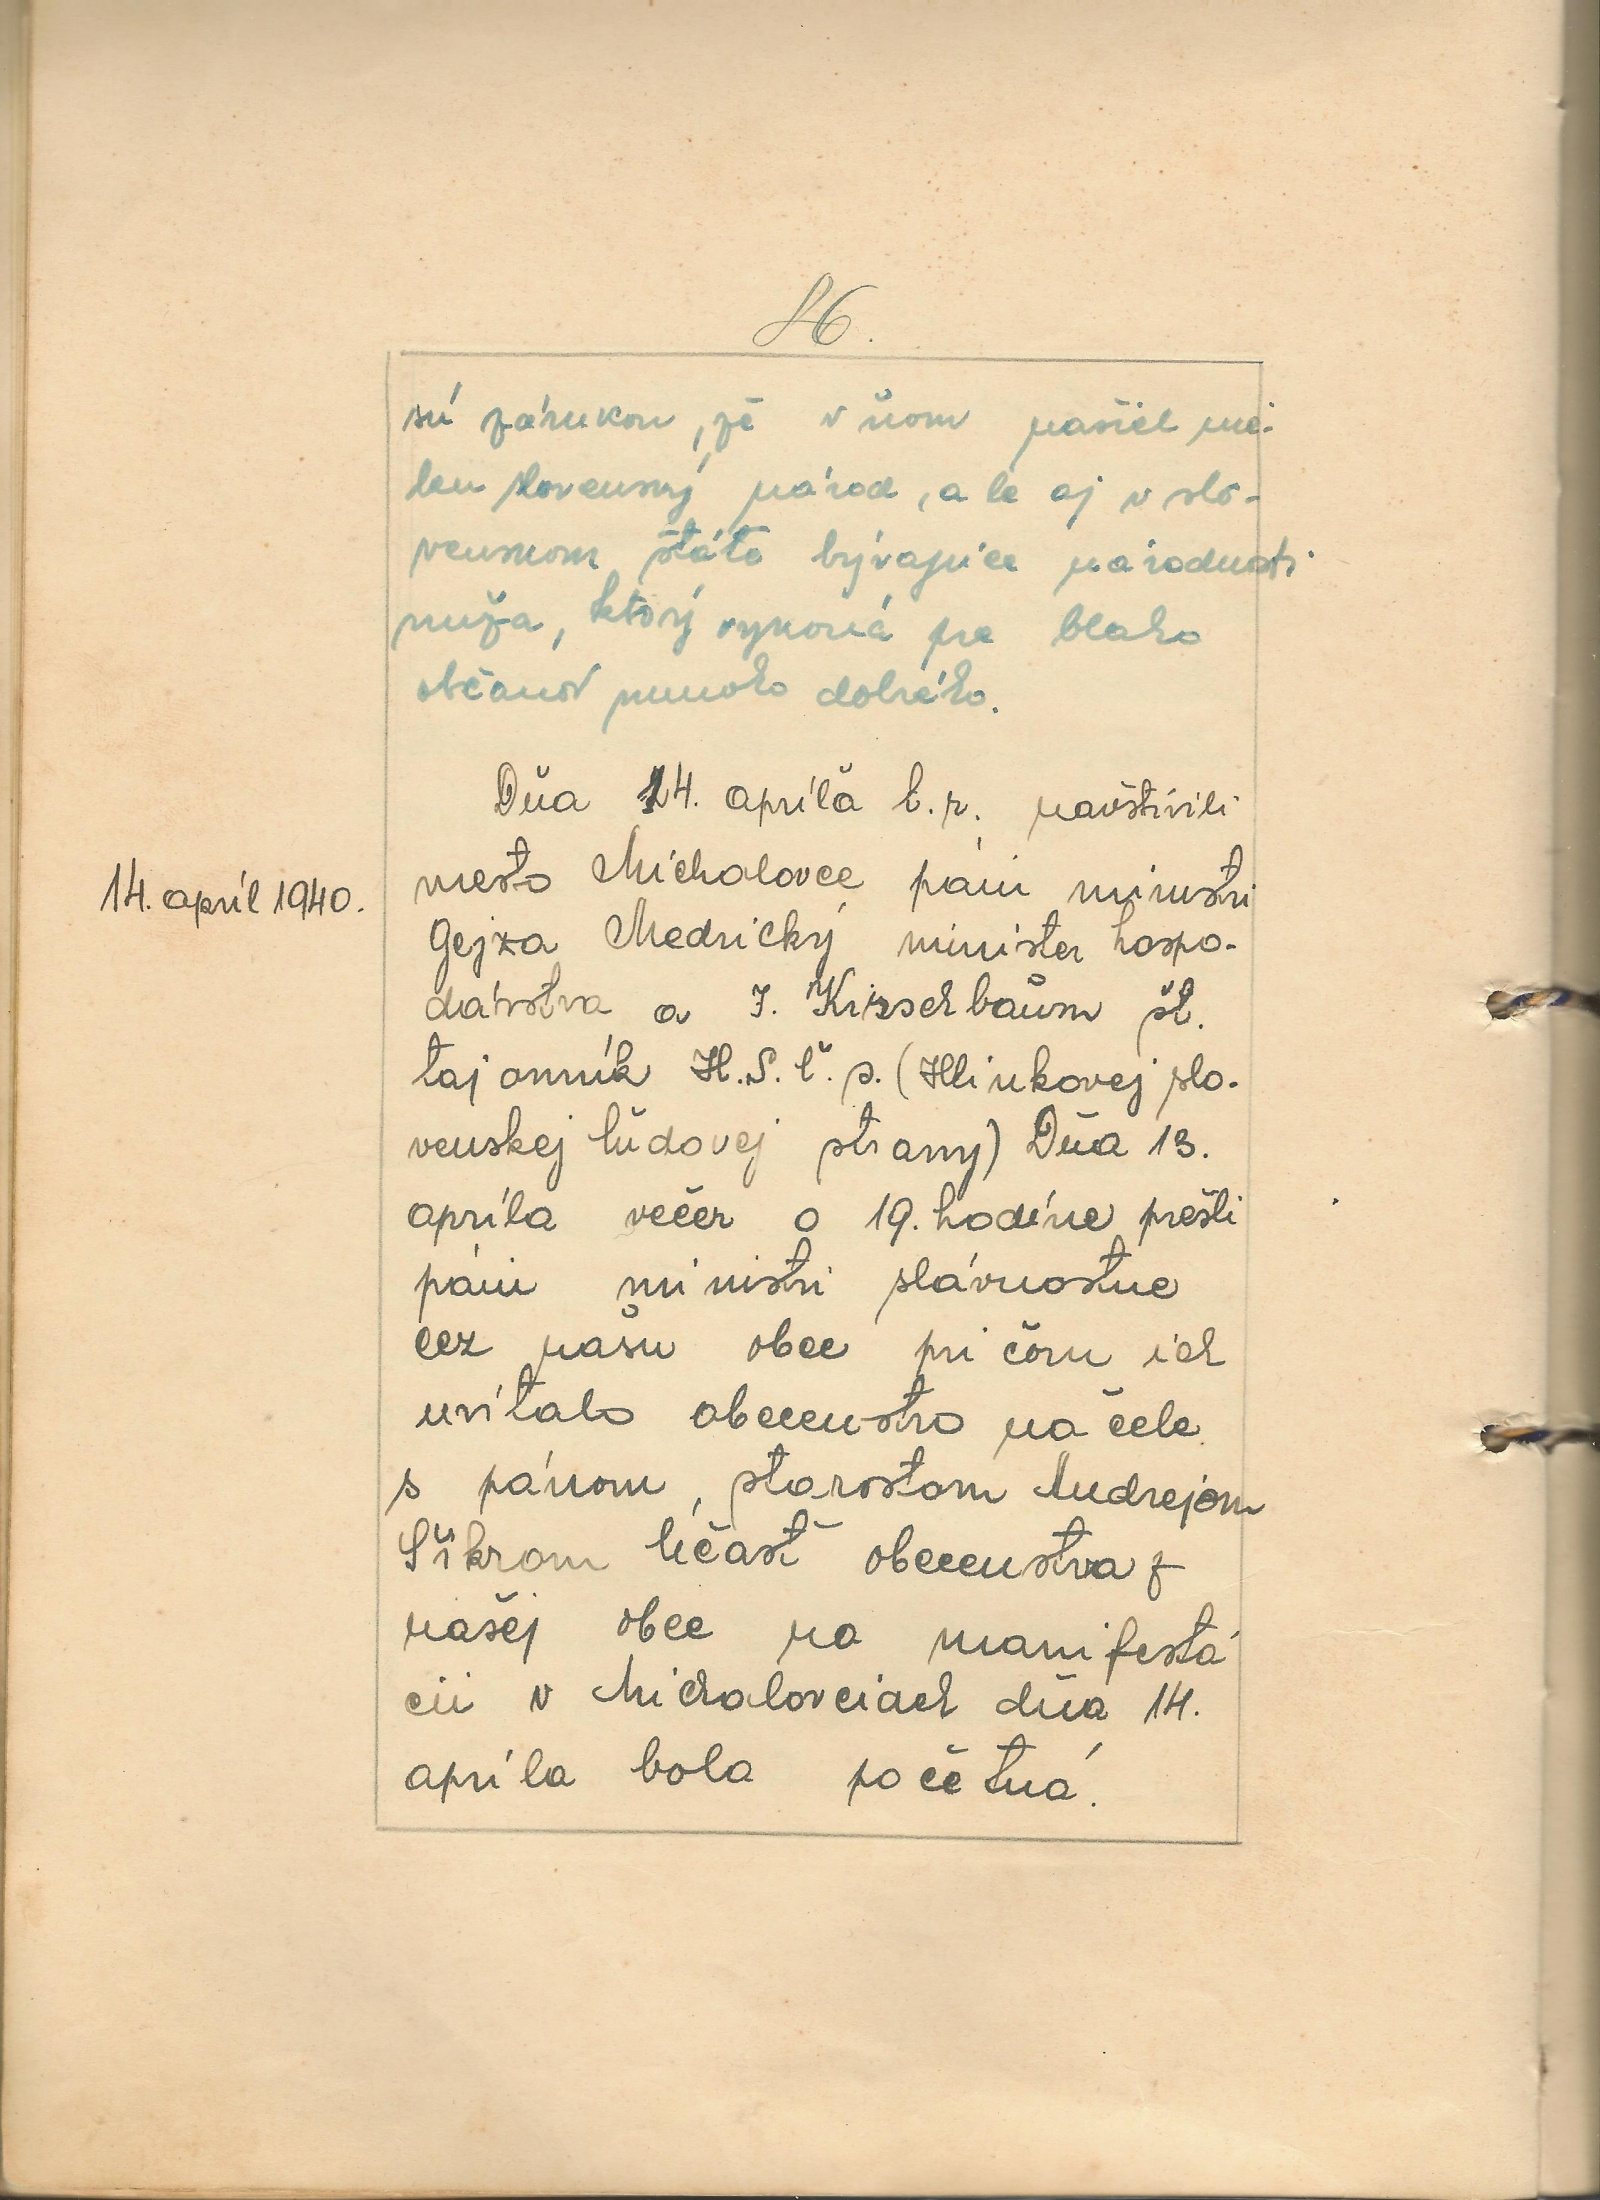 86.
sú zárukou, že v ňom našiel nie-
len slovenský národ, ale aj v slo-
venskom štáte bývajúce národnosti
muža, ktorý vykoná pre blaho
občanov mnoho dobrého.
Dňa 14. apríla t.r. navštívili
14. apríl 1940.
mesto Michalovce páni ministri
Gejza Medrický minister hospo-
dárstva a J. Kirschbaum št.
tajomník H.S.Ľ.s. (Hlinkovej slo-
venskej ľudovej strany) Dňa 13.
apríla večer o 19. hodine prešli
páni ministri slávnostne
cez našu obec pri čom ich
uvítalo obecenstvo na čele
s pánom, starostom Andrejom
Šikrom účasť obecenstva z
našej obce na manifestá
cii v Michalovciach dňa 14.
apríla bola početná.